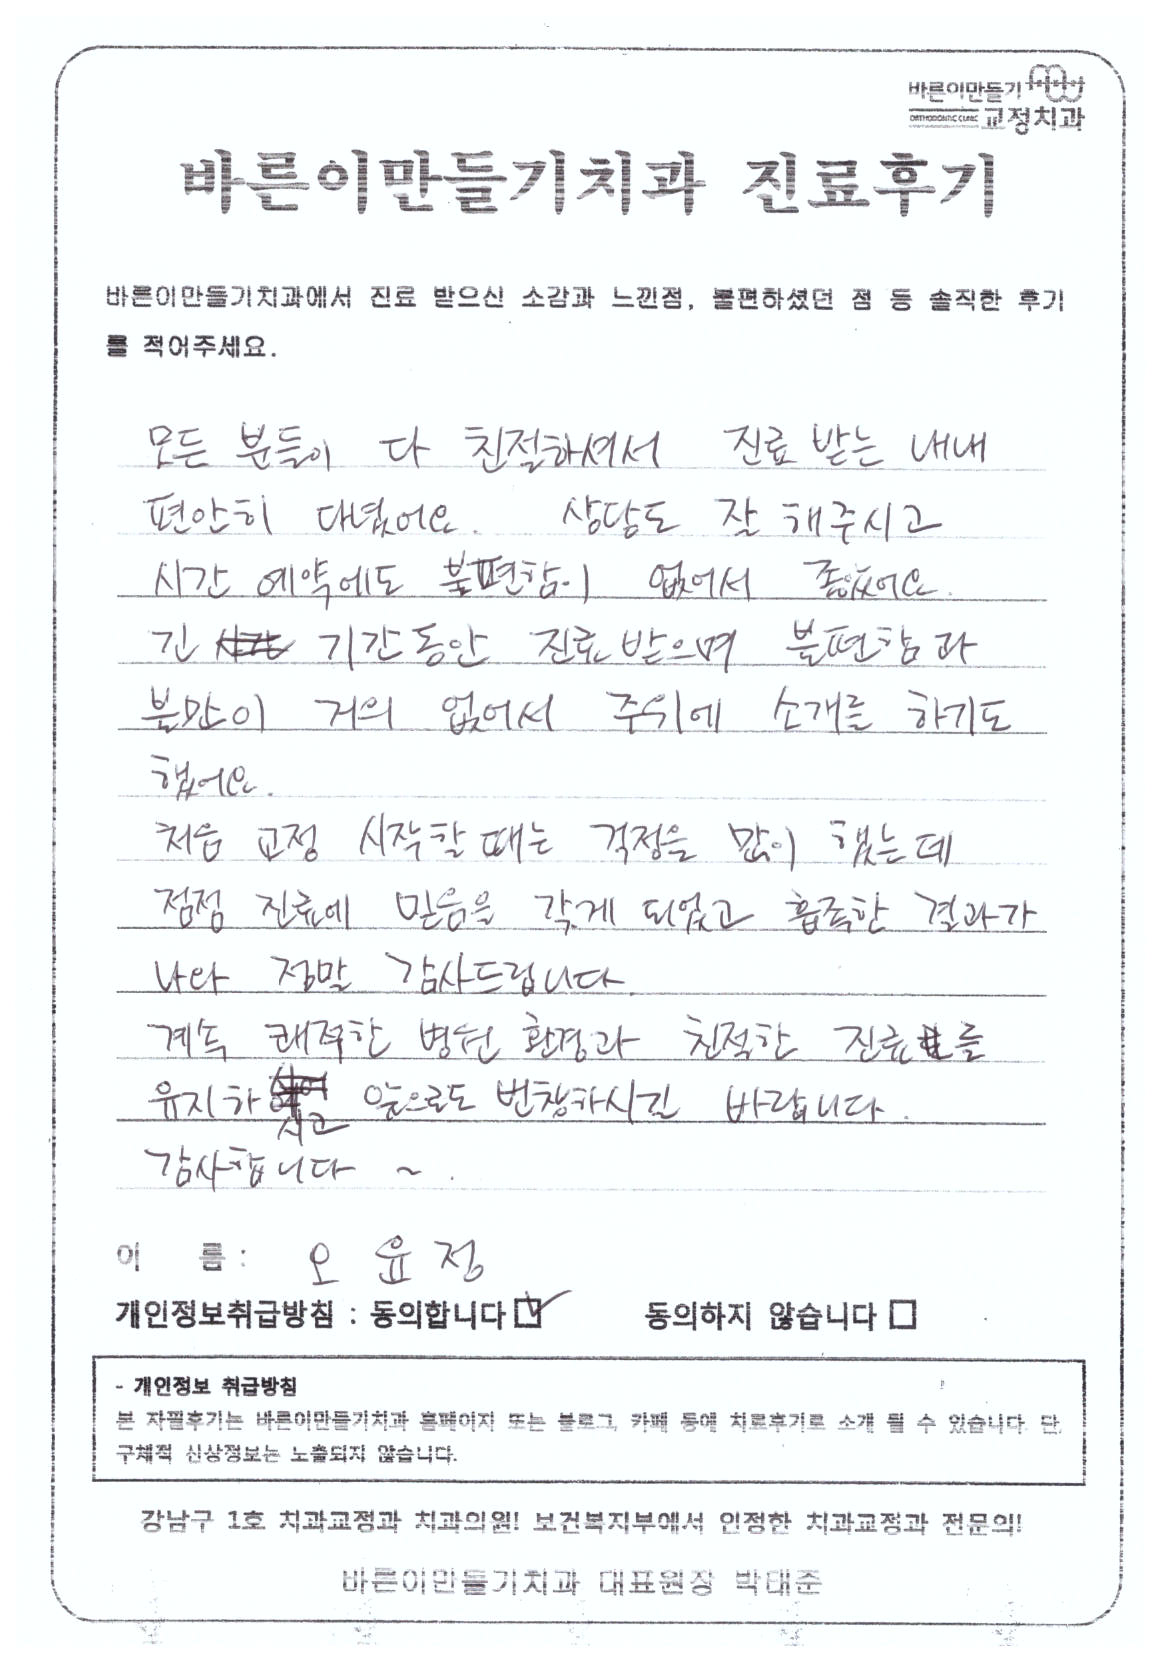 바른이만들기
ORTHODONTIC CLINIC 교정치과
바른이만들기치과 진료후기
바른이만들기치과에서 진료 받으신 소감과 느낀점, 불편하셨던 점 등 솔직한 후기
를 적어주세요.
모든 분들이 다 친절하셔서 진료 받는 내내
편안히 다녔었어요. 상담도 잘 해주시고
시간 예약에도 불편함이 없어서 좋았어요.
긴 기간동안 진료 받으며 불편함과
불만이 거의 없어서 주위에 소개를 하기도
했어요.
처음 교정 시작할 때는 걱정을 많이 했는데
점점 진료에 믿음을 갖게 되었고 흡족한 결과가
나와 정말 감사드립니다.
계속 쾌적한 병원 환경과 친절한 진료를
유지하시고 앞으로도 번창하시길 바랍니다.
감사합니다 ~.
이 름 : 오윤정
개인정보취급방침 : 동의합니다 동의하지 않습니다
- 개인정보 취급방침
본 자필후기는 바른이만들기치과 홈페이지 또는 블로그, 카페 등에 치료후기로 소개 될 수 있습니다. 단,
구체적 신상정보는 노출되지 않습니다.
강남구 1호 치과교정과 치과의원! 보건복지부에서 인정한 치과교정과 전문의!
바른이만들기치과 대표원장 박대준